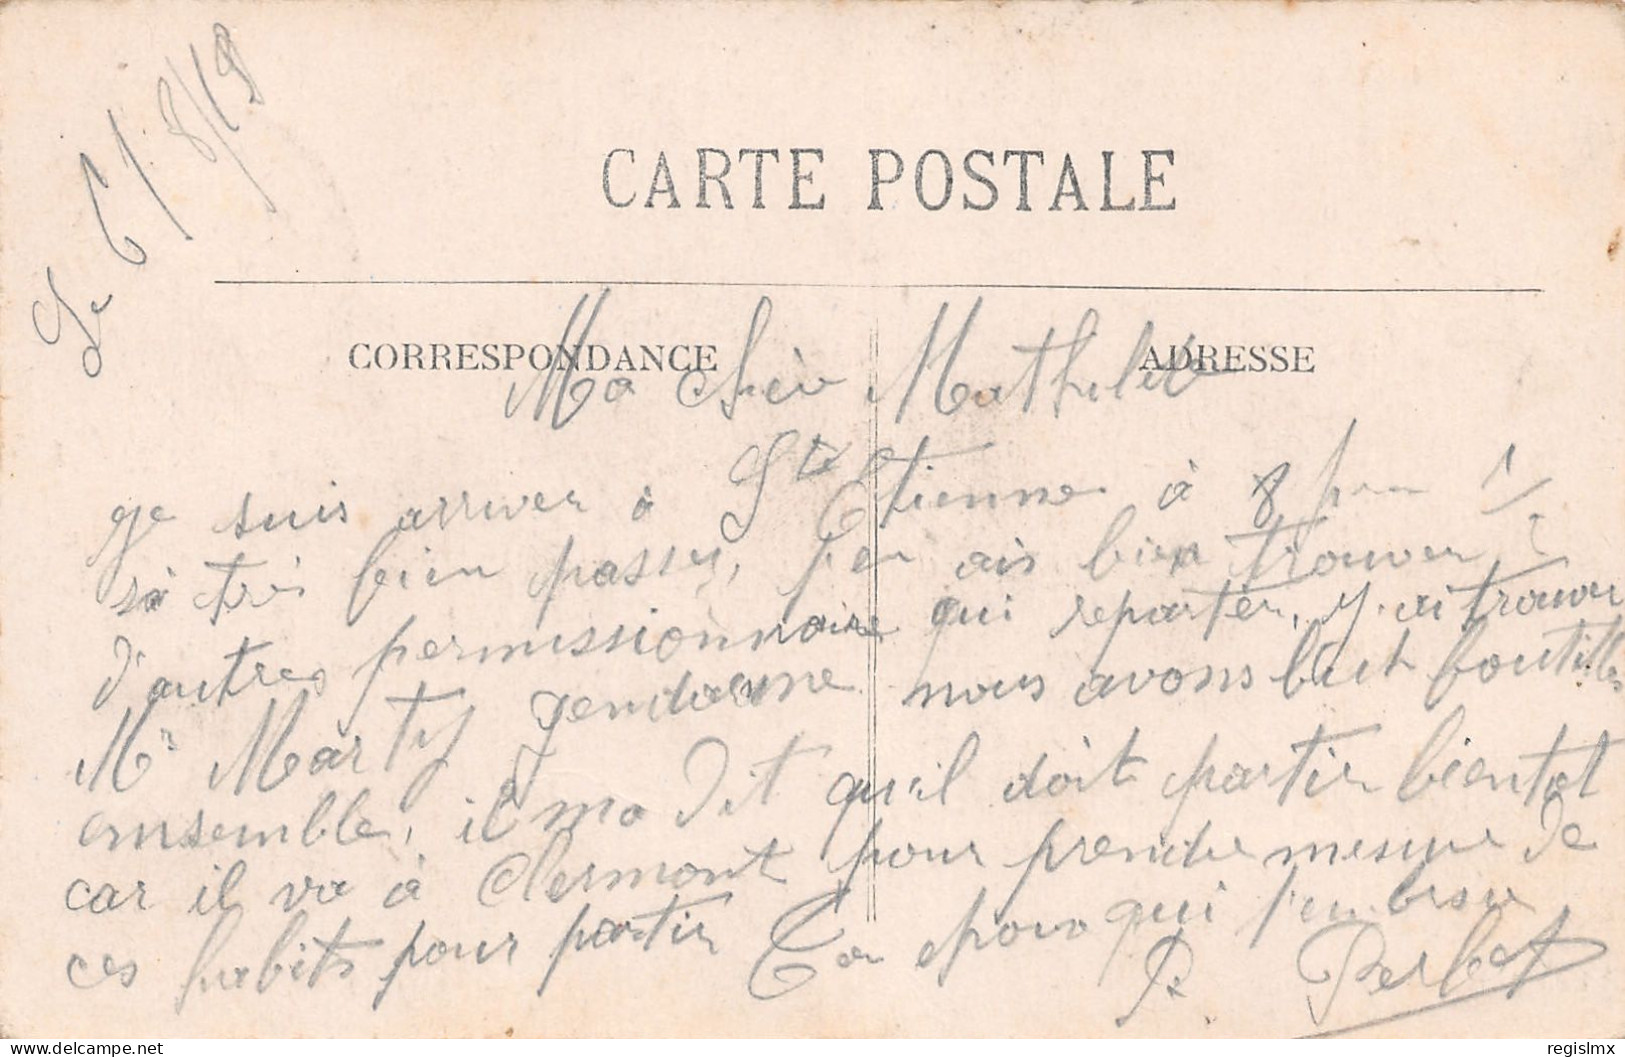 Le 6/8/19
CARTE POSTALE
CORRESPONDANCE
ADRESSE
Ma Chère Mathilde
je suis arriver à Ste Etienne à 8 heu 1/2
sè très bien passer, j'en ais bien trouver
d'autres permissionnaire qui reparter, j'ai trouver
Mr Marty gendarme nous avons but boutilles
ensemble, il ma dit qu'il doit partir bientot
car il va à Clermont pour prendre mesure de
ces habits pour partir Ton epoux qui t'embrsse
P. Perbet
regislmx